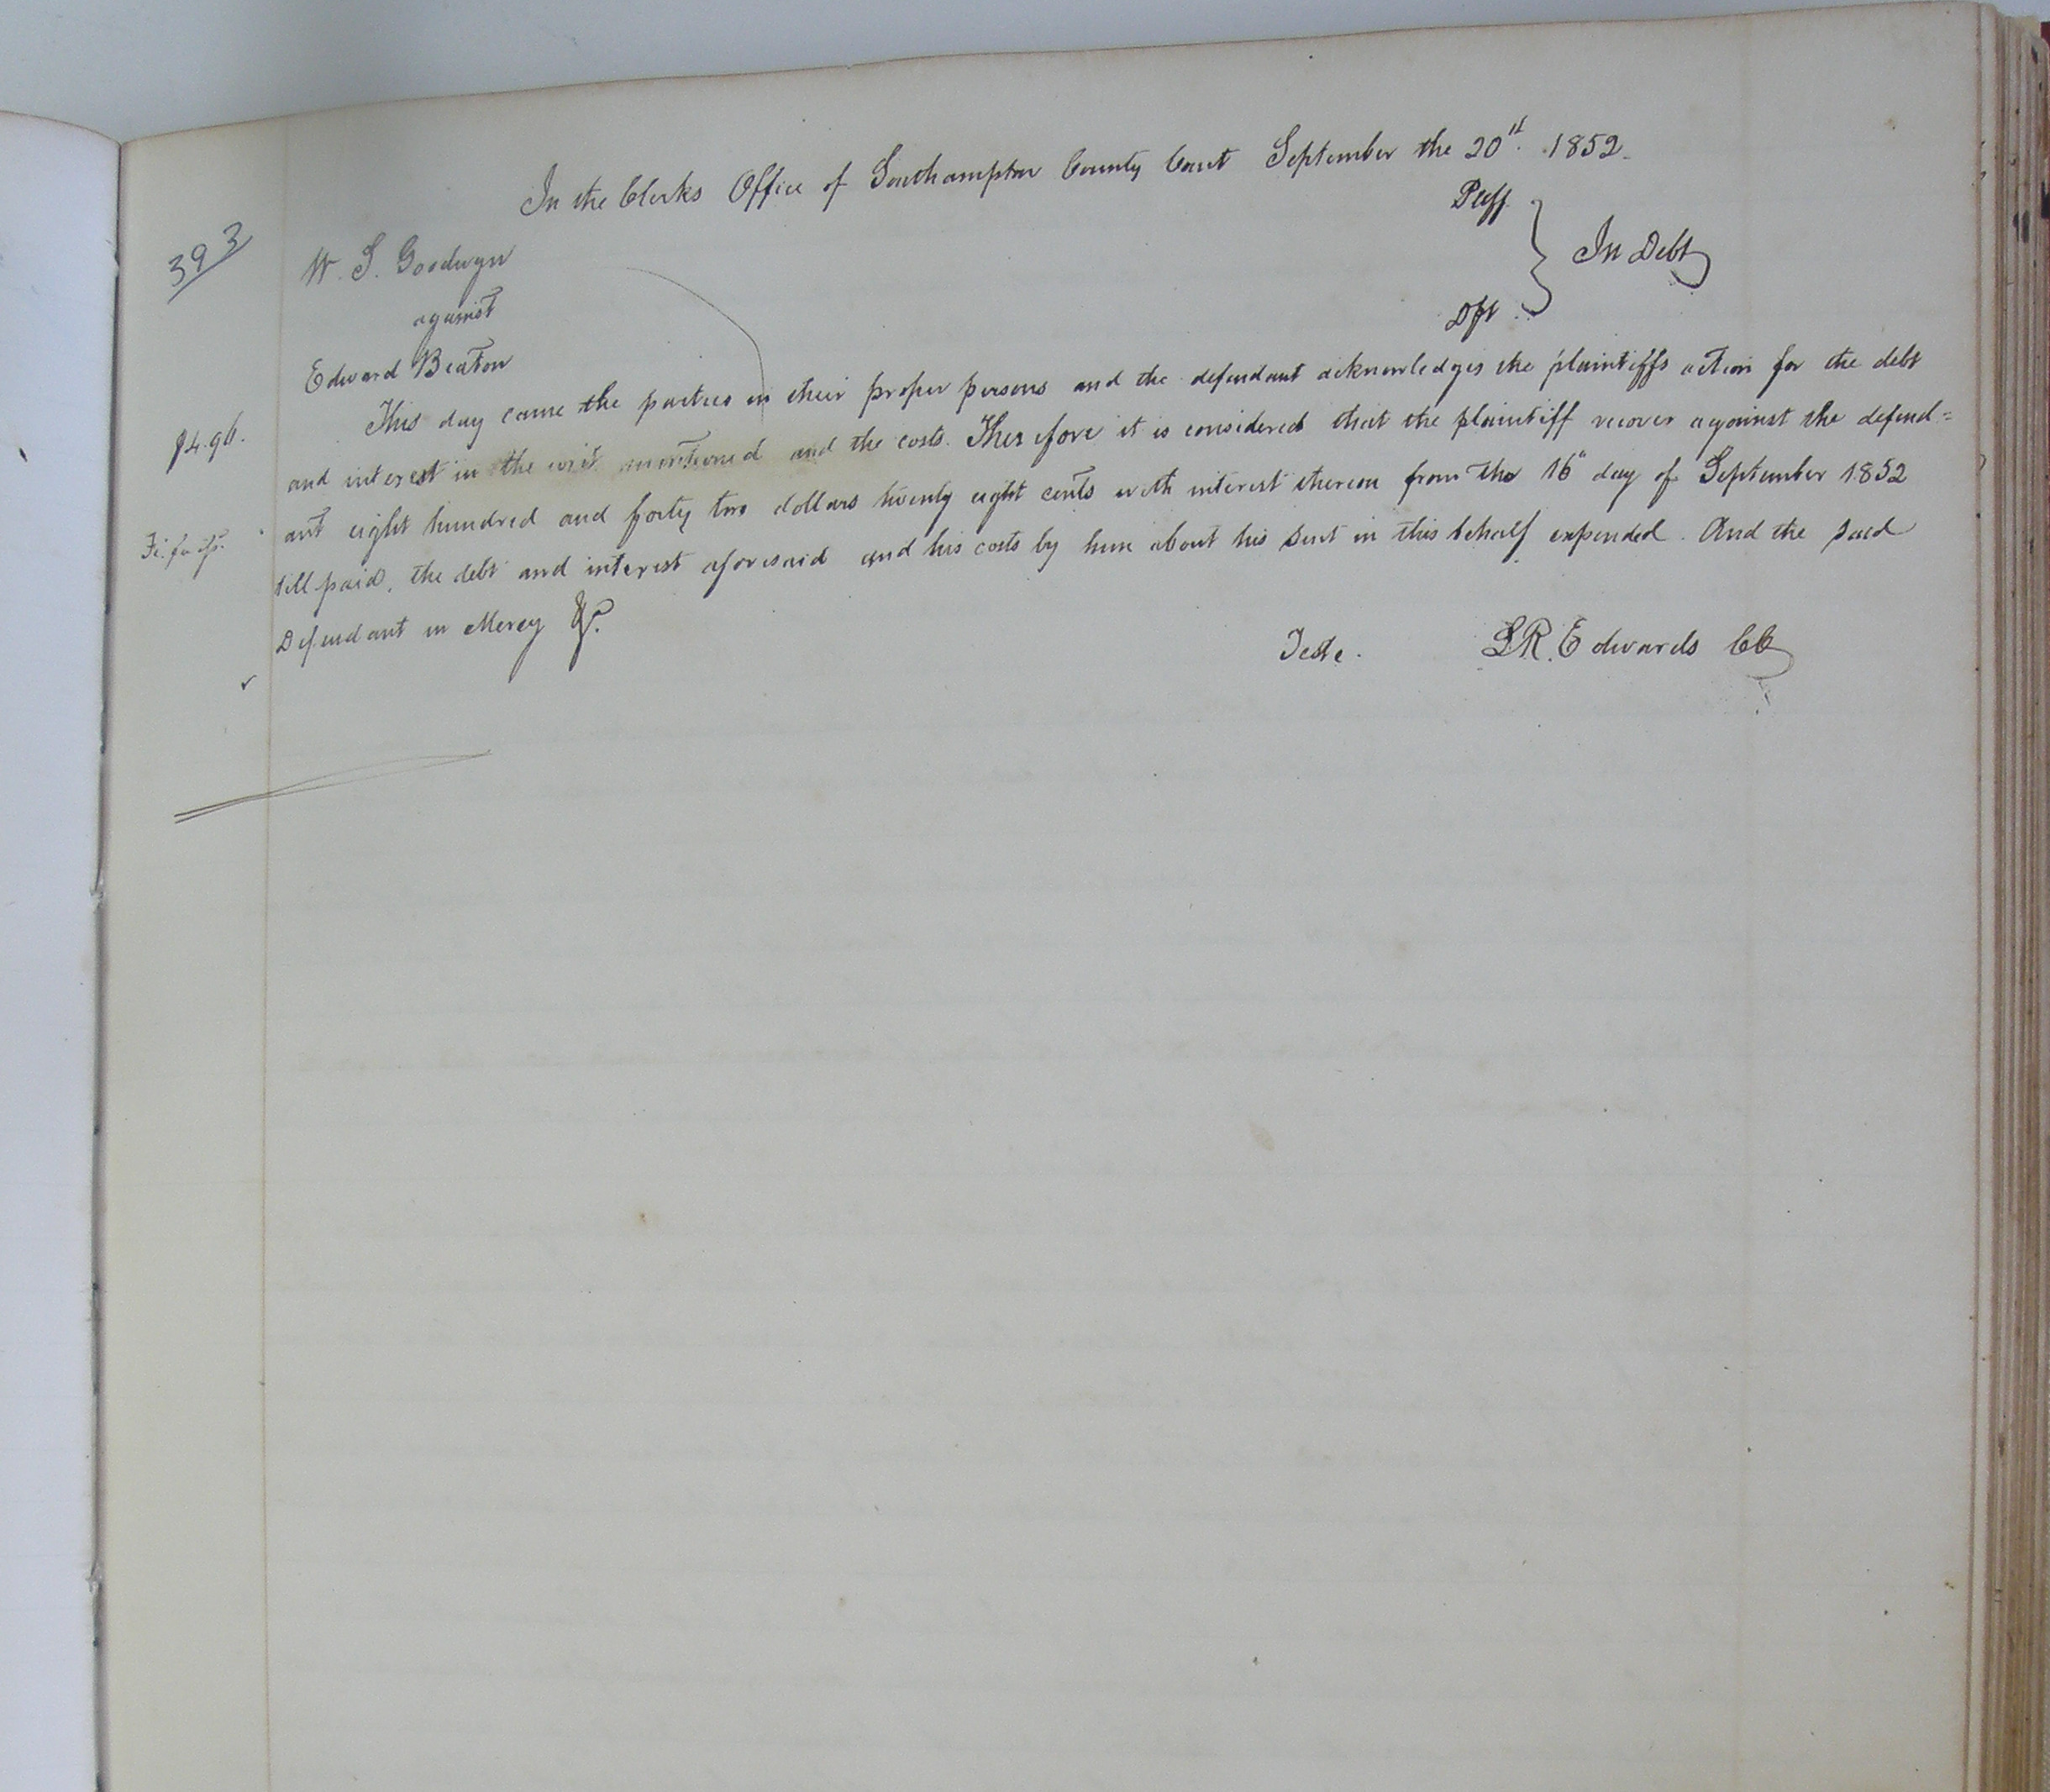 In the Clerks Office of Southampton County Court September the 20th. 1852.
393
W. S. Goodwyn Plff.
against In Debt
Edward Beaton Dft.
This day came the parties in their proper persons and the defendant acknowledges the plaintiffs action for the debt
$4.96.
and interest in the writ mentioned and the costs. Therefore it is considered that the plaintiff recover against the defend=
ant eight hundred and forty two dollars twenty eight cents with interest thereon from the 16" day of September 1852
Fi. fa
till paid, the debt and interest aforesaid and his costs by him about his suit in this behalf expended. And the said
Defendant in Mercy &c.
Teste. L.R. Edwards CC